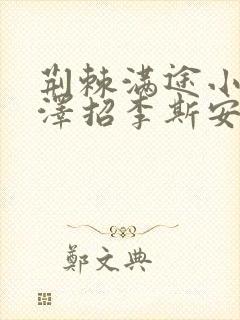 荆棘满途小
澤招李斯安
鄭文典